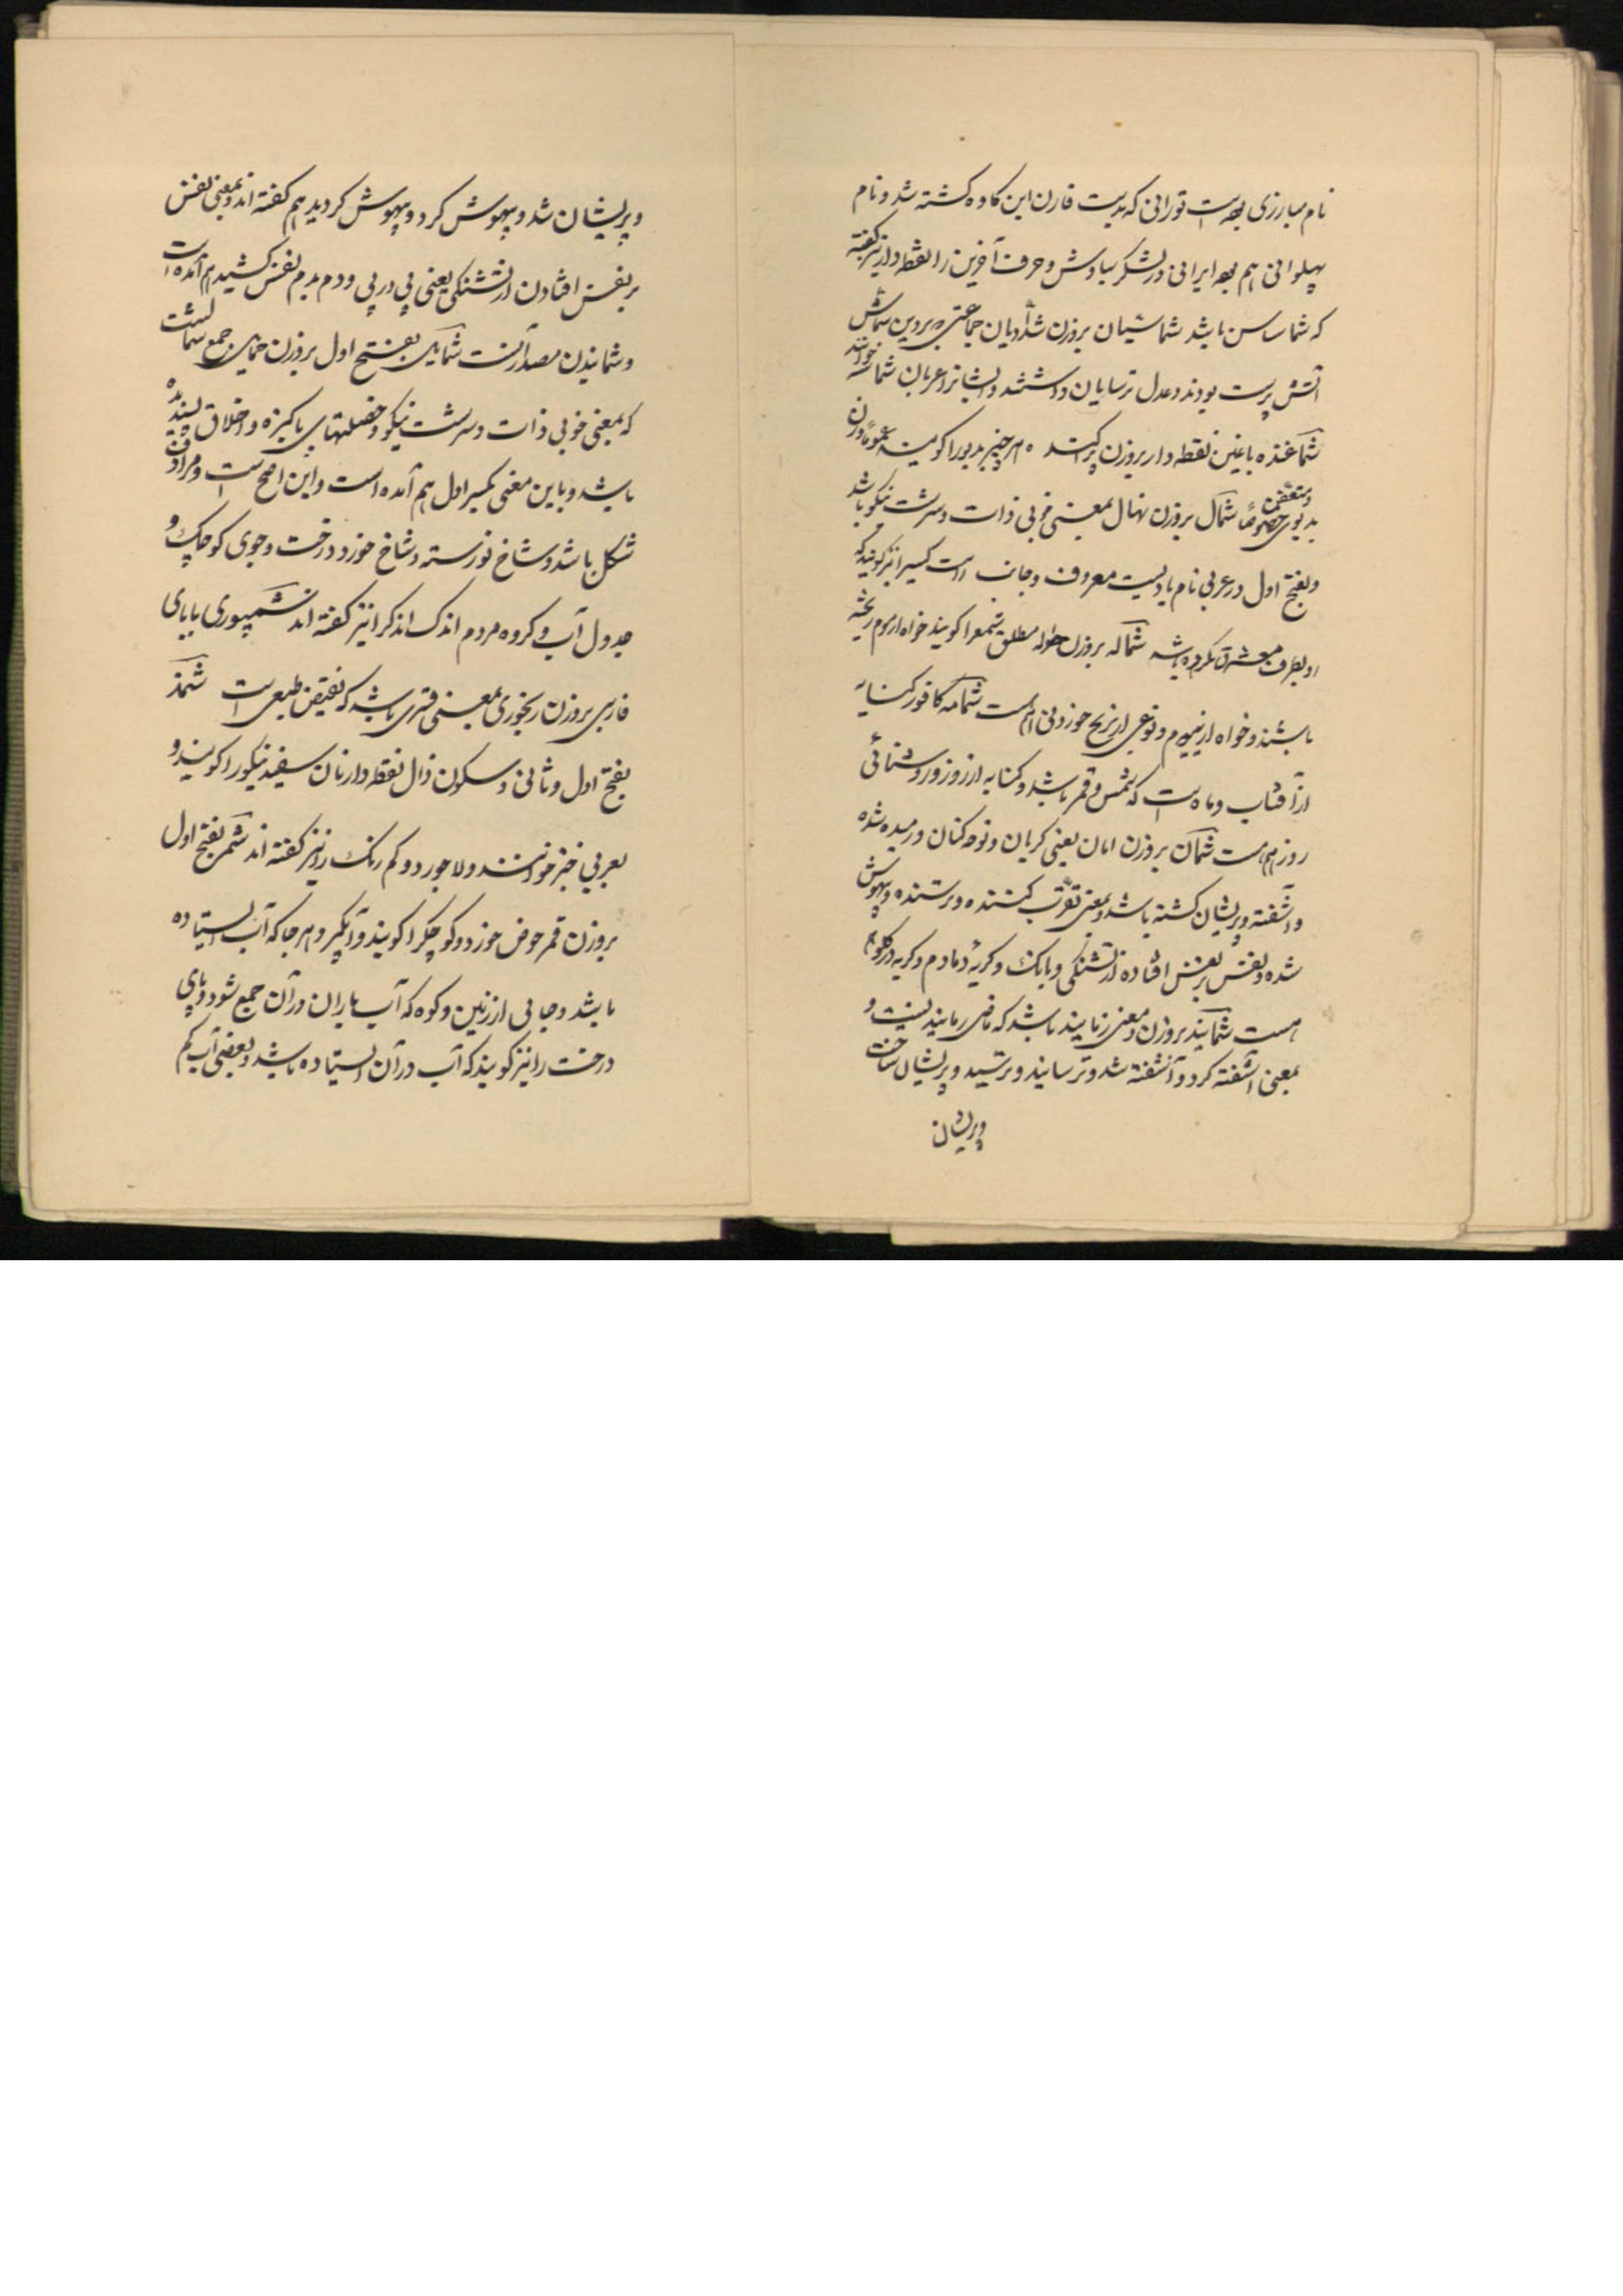 نام مبارزی بوده است تورانی که بدست قارن ابن کاوه کشته شد و نام
پهلوانی هم بوده ایرانی در لشکر سیاوش و حرف آخرین را نقطه دار نیز گفته
که شماساس باشد شماشیان بروزن جماعتی بر دین شماش
آتش پرست بودند و عدل ترسایان داشتند و ایشانرا عربان شماسه خوانند
شماغنده با غین نقطه دار بروزن هر چیز بدبو را گویند عموما و زن
بدبوی متعفن خصوصا شمال بروزن نهال بمعنی خوبی ذات و سرشت نیکو باشد
و بفتح اول در عربی نام بادیست معروف و جانب است کسیرا نیز گویند که
او بطرف مشرق کرده باشد شماله بروزن حواله مطلق شمع را گویند خواه از موم ریخته
باشند و خواه از پیه و نوعی از برنج خوردنی هم است شمامه کافور کنایه
از آفتاب و ماه است که شمس و قمر باشد و کنایه از روز و روشنائی
روز هم هست شمان بروزن امان یعنی گریان و نوحه کنان و رمیده شده
و آشفته و پریشان گشته باشد و بمعنی کننده و ترسنده و بیهوش
شده و نفس بر نفس افتاده از تشنگی و بانک و گریه دمادم و گریه در گلو هم
هست شمانید بروزن و معنی رمانید باشد که ماضی رمانیدنست و
بمعنی آشفته کرد و آشفته شد و ترسانید و ترسید و پریشان ساخت
و پریشان
و پریشان شد و بیهوش کرد و بیهوش گردید هم گفته اند و بمعنی نفس
بر نفس افتادن از تشنگی یعنی پی در پی و دم بدم نفس کشید هم آمده است
و شمانیدن مصدر آنست شمایل بفتح اول بروزن حمایل جمع شمالست
که بمعنی خوبی ذات و سرشت نیکو و خصلتهای پاکیزه و اخلاق پسندیده
باشد و باین معنی بکسر اول هم آمده است و این اصح است و مرادف
شکل باشد و شاخ نورسته و شاخ خورد درخت و جوی کوچک و
جدول آب و گروه مردم اندک اندک را نیز گفته اند شمپوری با بای
فارسی بروزن رنجوری بمعنی قسری باشد که نقیض طبیعی است شمذ
بفتح اول و ثانی و سکون ذال نقطه دار نان سفید نیکو را گویند و
بعربی خبز خوانند و لاجورد و کم رنگ را نیز گفته اند شمر بفتح اول
بروزن قمر حوض خورد و کوچک را گویند و آبگیر و هر جا که آب ایستاده
باشد و جایی از زمین و کوه که آب باران در آن جمع شود و پای
درخت را نیز گویند که آب در آن ایستاده باشد و بعضی آب کم